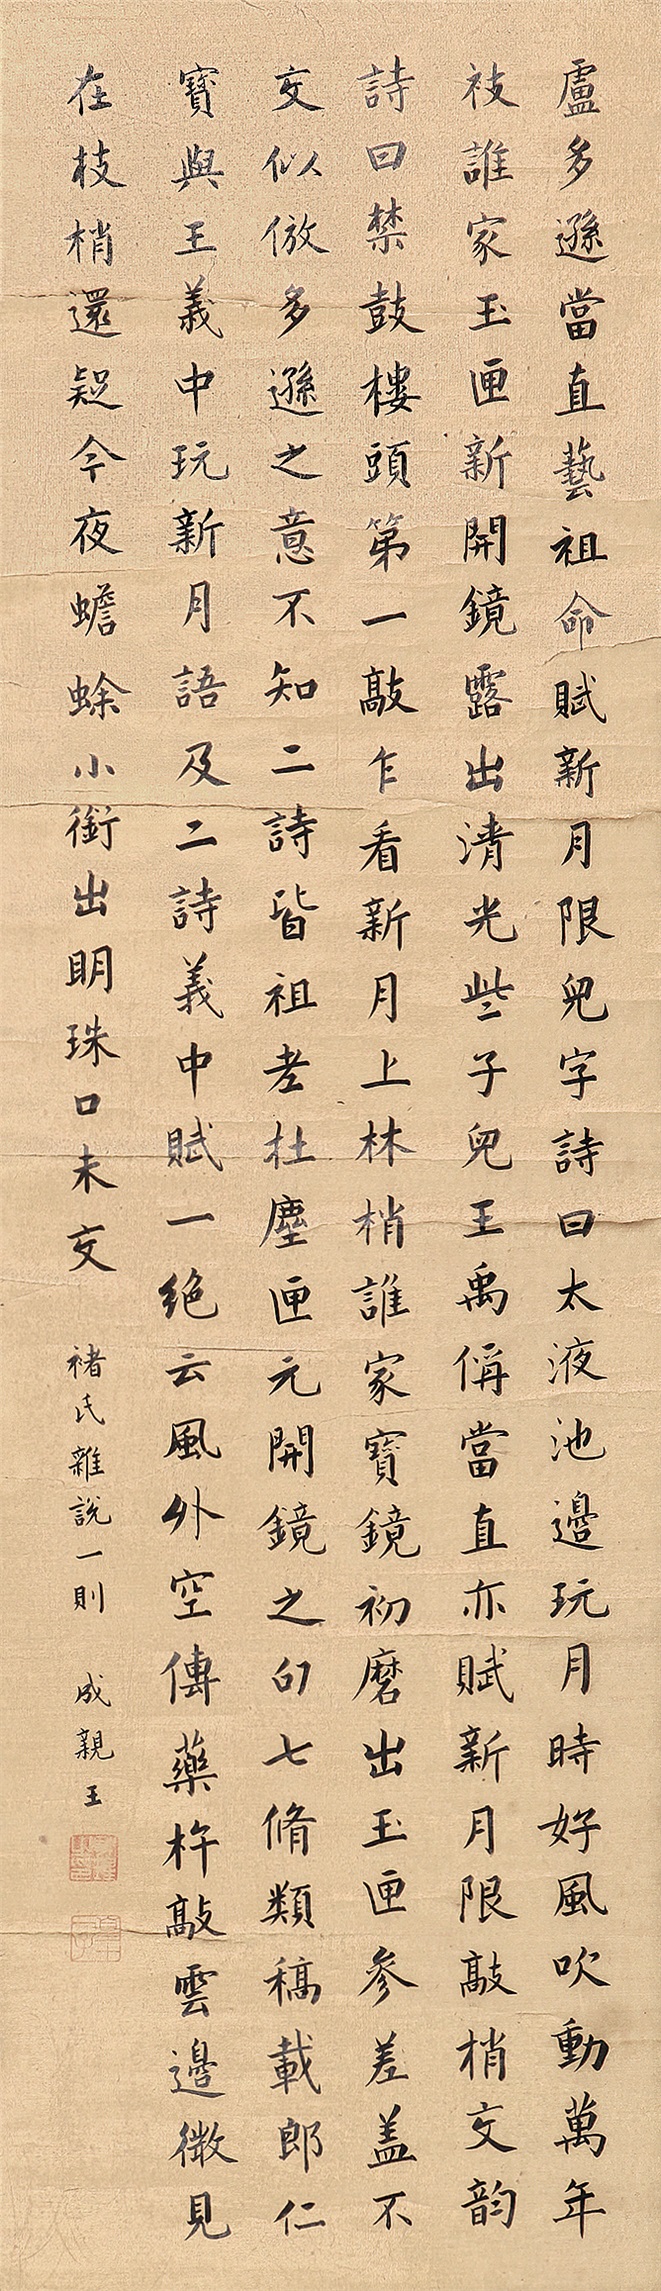 盧多遜當直藝祖命賦新月限兒字詩曰太液池邊玩月時好風吹動萬年
枝誰家玉匣新開鏡露出清光些子兒王禹偁當直亦賦新月限敲梢交韵
詩曰禁鼓樓頭第一敲乍看新月上林梢誰家寶鏡初磨出玉匣參差盖不
交似倣多遜之意不知二詩皆祖老杜塵匣元開鏡之句七脩類稿載郎仁
寶與王義中玩新月語及二詩義中賦一絕云風外空傳藥杵敲雲邊微見
在枝梢還疑今夜蟾蜍小銜出明珠口未交
褚氏雜說一則
成親王